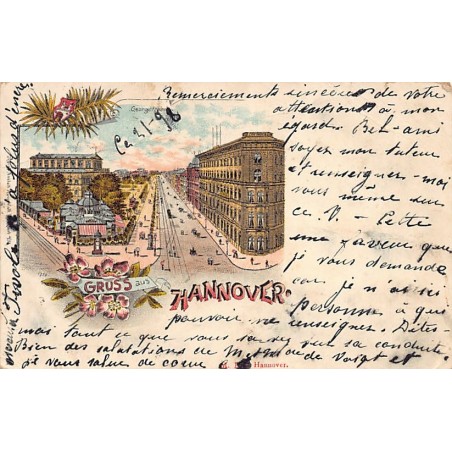 Remerciements sincères de votre
attentions à mon
égard. Bel-ami
soyez mon tuteur
et renseignez-moi
vous même sur
ce. V - Cette
une faveur que
je vous demande
car je n'ai ici
personne à que
pouvoir me renseigner. Dites-
moi tout ce que vous savez sur sa conduite
Bien des salutations de Voigt et
je vous salue de coeur
Ce 21-9
GRUSS aus
HANNOVER.
Hannover.